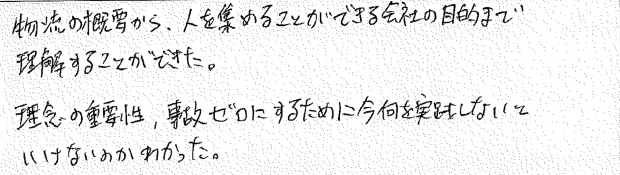 物流の概要から、人を集めることができる会社の目的まで
理解することができた。
理念の重要性, 事故ゼロにするために今何を実践しないと
いけないのかわかった。